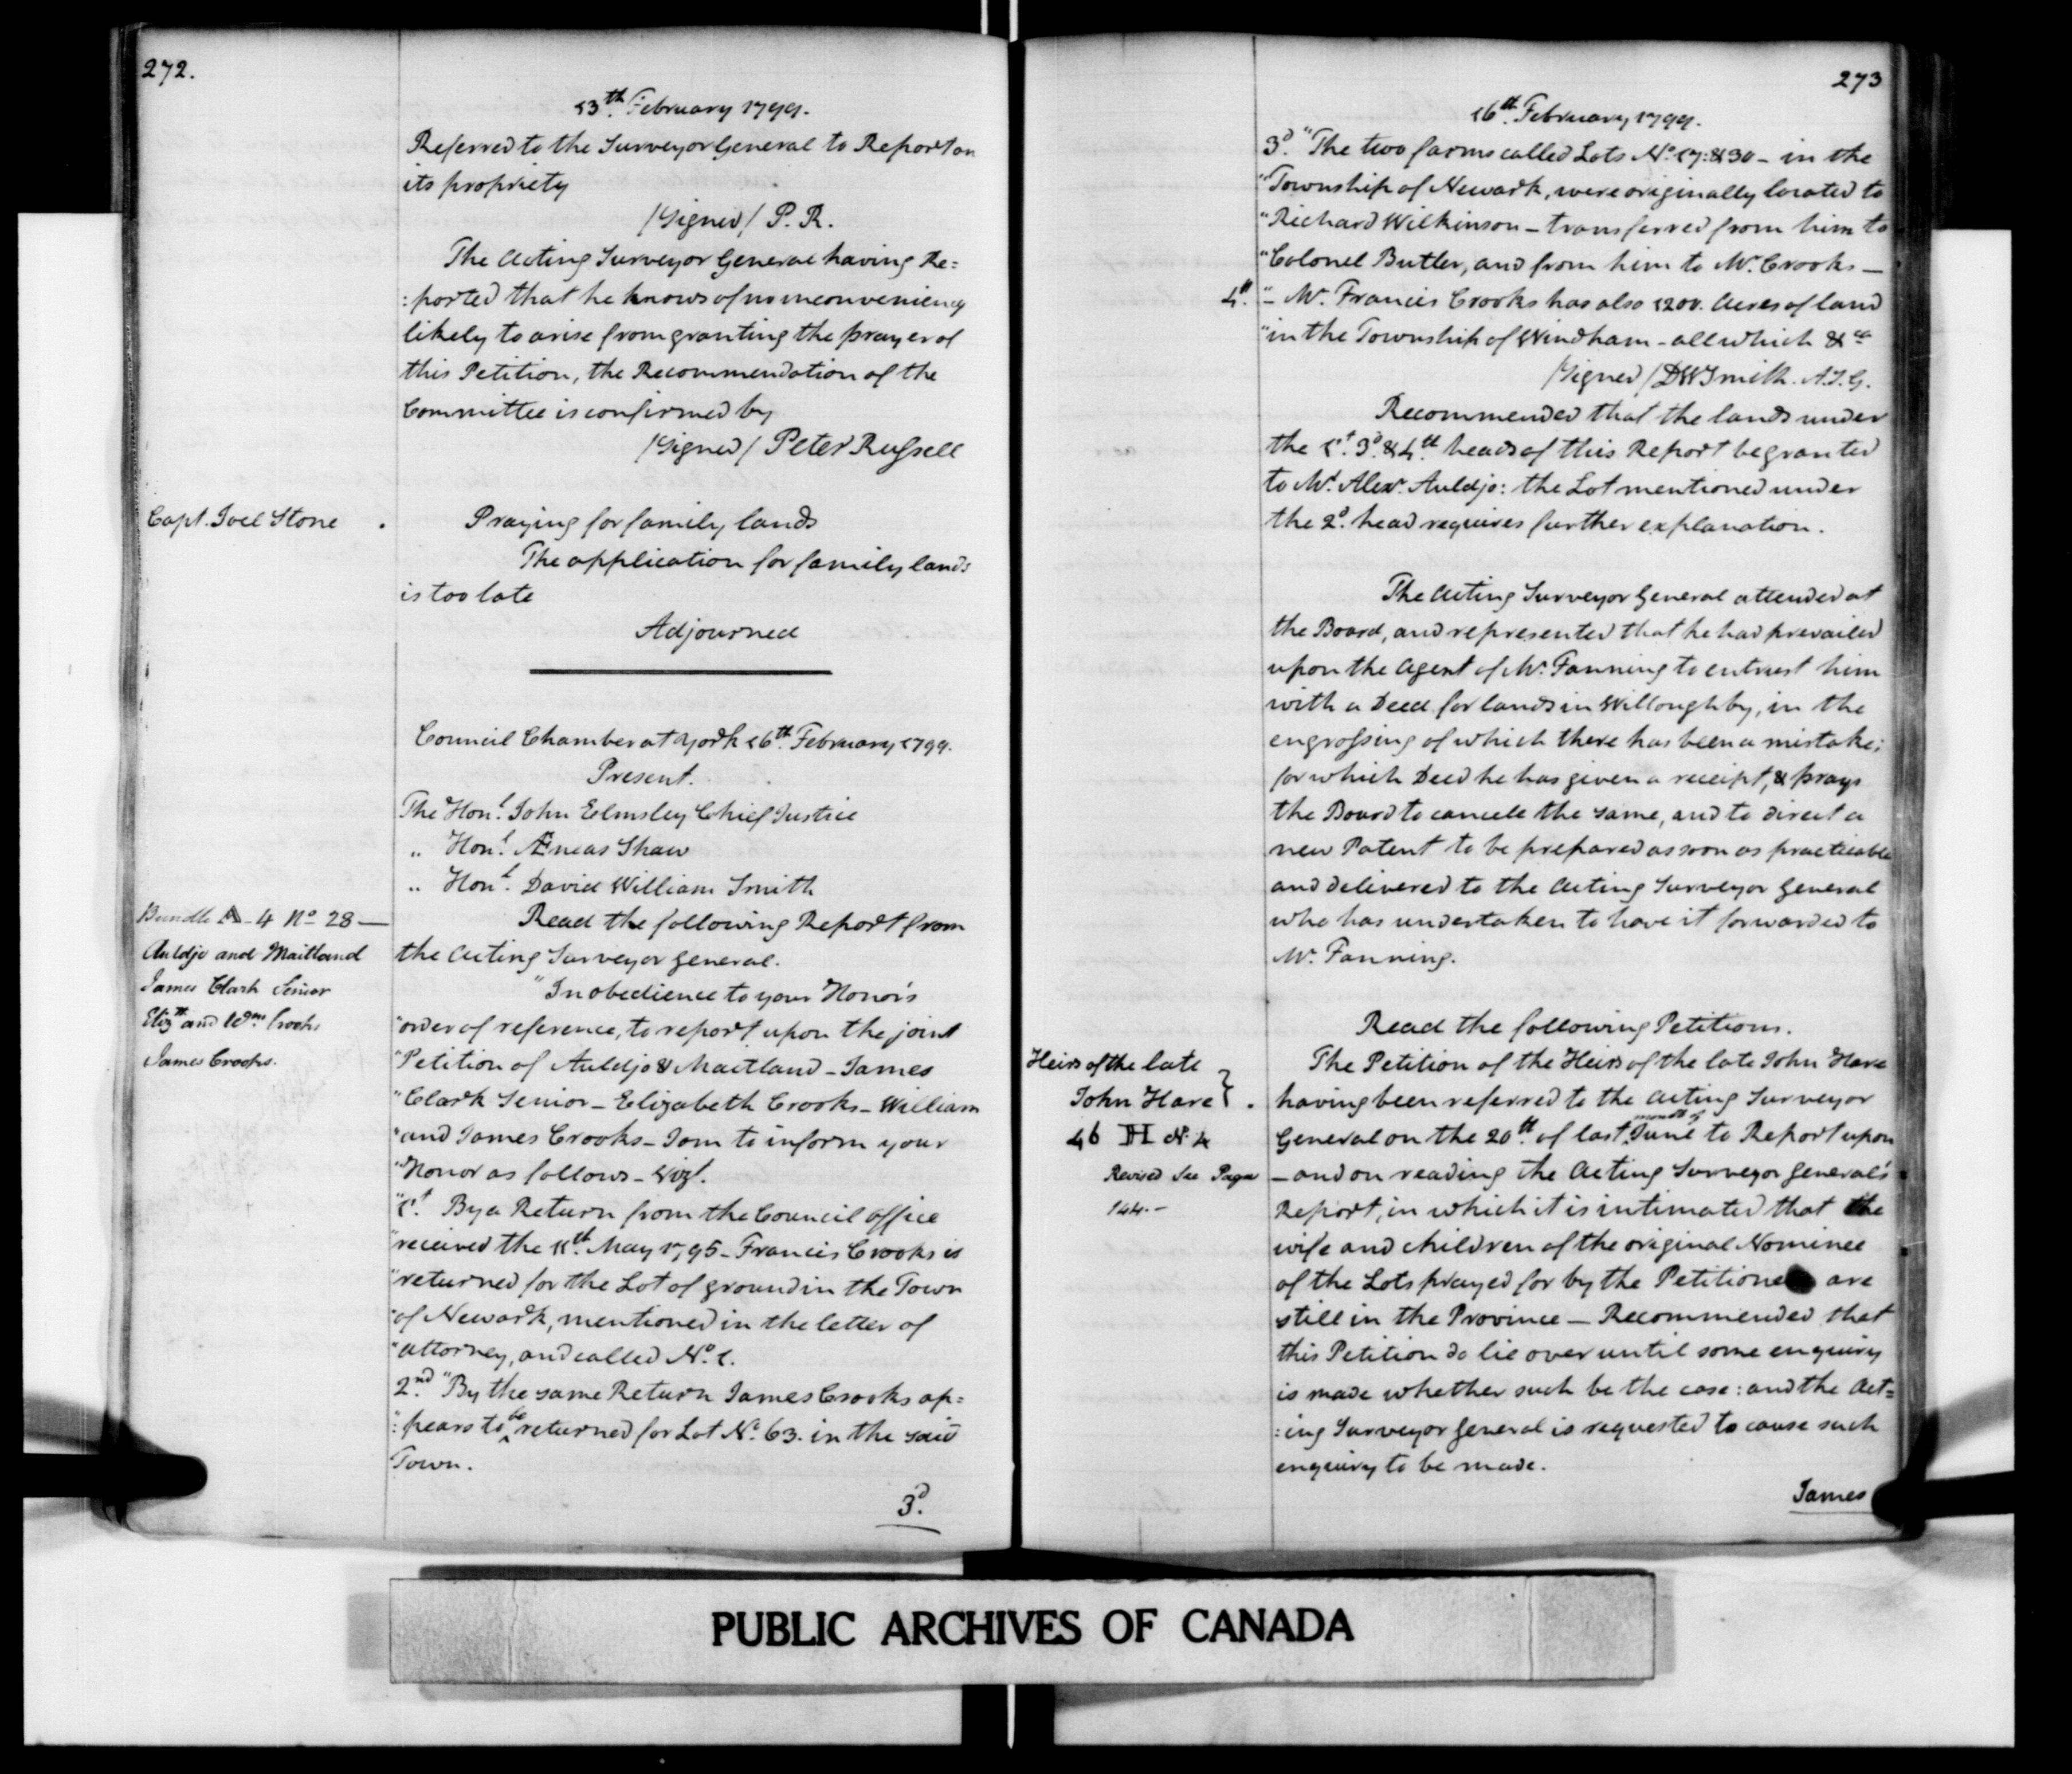 272.
13th February 1799.
Referred to the Surveyor General to Report on
its propriety
/Signed/ P. R.
The Acting Surveyor General having Re=
:ported that he knows of no inconveniency
likely to arise from granting the prayer of
this Petition, the Recommendation of the
Committee is confirmed by
/Signed/ Peter Russell
Capt. Joel Stone . Praying for family lands
The application for family lands
is too late
Adjourned
Council Chamber at York 16th February 1799.
Present.
The Honl. John Elmsley Chief Justice
" Honl. Æneas Shaw
" Honl. David William Smith
Bundle A-4 No 28 —
Auldjo and Maitland
James Clark Senior
Elizth and Wm Crooks
James Crooks.
Read the following Report from
the Acting Surveyor General.
"In obedience to your Honor's
"order of reference, to report upon the joint
"Petition of Auldjo & Maitland - James
"Clark Senior - Elizabeth Crooks - William
"and James Crooks - I am to inform your
"Honor as follows - Vizt.
"1st. By a Return from the Council Office
"received the 11th. May 1795 - Francis Crooks is
"returned for the Lot of ground in the Town
"of Newark, mentioned in the letter of
"attorney, and called No. 1.
2nd. "By the same Return James Crooks ap=
":pears to be returned for Lot No. 63. in the said
Town.
3d.
273
16th. February 1799.
3d. "The two farms called Lots No. 17: & 30 - in the
"Township of Newark, were originally located to
"Richard Wilkinson - transferred from him to
"Colonel Butler, and from him to Mr. Crooks —
4th. "- Mr. Francis Crooks has also 1200. Acres of land
"in the Township of Windham - all which &ca
/Signed/ DW Smith. A.S.G.
Recommended that the lands under
the 1st. 3d. & 4th. heads of this Report be granted
to Mr. Alexr. Auldjo: the Lot mentioned under
the 2d. head requires further explanation.
The Acting Surveyor General attended at
the Board, and represented that he had prevailed
upon the Agent of Mr. Fanning to entrust him
with a Deed for lands in Willoughby, in the
engrossing of which there has been a mistake;
for which Deed he has given a receipt, & prays
the Board to cancele the same, and to direct a
new Patent to be prepared as soon as practicable
and delivered to the Acting Surveyor General
who has undertaken to have it forwarded to
Mr. Fanning.
Read the following Petitions.
Heirs of the late
John Hare } .
46 H N. 4
Revised See Page
144.-
The Petition of the Heirs of the late John Hare
having been referred to the Acting Surveyor
General on the 20th. of last month of June to Report upon
- and on reading the Acting Surveyor General's
Report, in which it is intimated that the
wife and children of the original Nominee
of the Lots prayed for by the Petitioner are
still in the Province — Recommended that
this Petition do lie over until some enquiry
is made whether such be the case: and the Act=
:ing Surveyor General is requested to cause such
enquiry to be made.
James
PUBLIC ARCHIVES OF CANADA